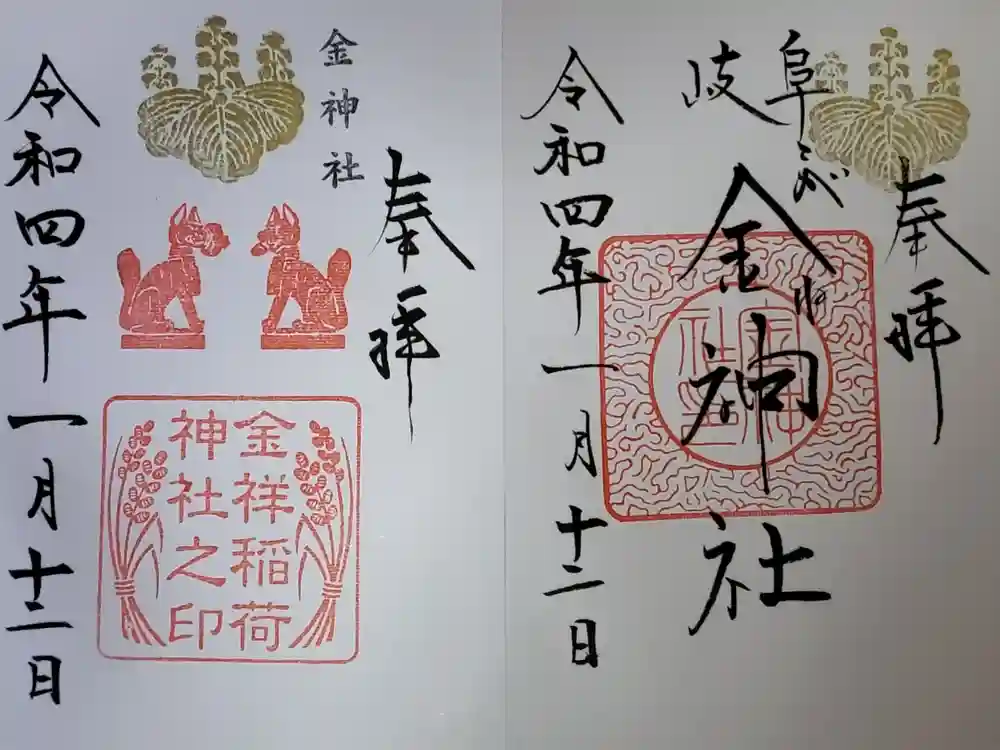 奉拝
岐阜
こがね
金神社
令和四年一月十二日
金神社
奉拝
金祥稲荷
神社之印
令和四年一月十二日